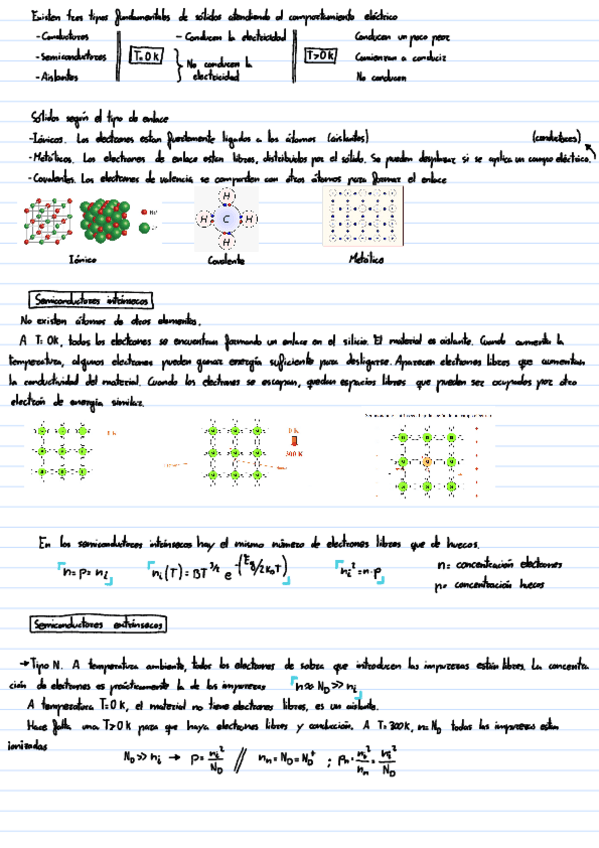 Existen tres tipos fundamentales de sólidos atendiendo al comportamiento eléctrico
- Conductores - Conducen la electricidad Conducen un poco peor
- Semiconductores T=0K No conducen la T>0K Comienzan a conducir
- Aislantes electricidad No conducen
Sólidos según el tipo de enlace
- Iónicos. Los electrones estan fuertemente ligados a los átomos (aislantes) (conductores)
- Metálicos. Los electrones de enlace estan libres, distribuidos por el sólido. Se pueden desplazar si se aplica un campo eléctrico.
- Covalentes. Los electrones de valencia se comparten con otros átomos para formar el enlace
H
H C H
H
Iónico Covalente Metálico
Semiconductores intrínsecos
No existen átomos de otros elementos.
A T=0K, todos los electrones se encuentran formando un enlace en el silicio. El material es aislante. Cuando aumenta la
temperatura, algunos electrones pueden ganar energía suficiente para desligarse. Aparecen electrones libres que aumentan
la conductividad del material. Cuando los electrones se escapan, quedan espacios libres que pueden ser ocupados por otro
electrón de energía similar.
0 K
0 K
300 K
En los semiconductores intrínsecos hay el mismo número de electrones libres que de huecos.
n=p=ni ni(T)=BT^3/2 e^-(Eg/2k0T) ni²=n·p n= concentración electrones
p= concentración huecos
Semiconductores extrínsecos
→ Tipo N. A temperatura ambiente, todos los electrones de sobra que introducen las impurezas están libres. La concentra
ción de electrones es prácticamente la de las impurezas n≈ND>>ni
A temperatura T=0K, el material no tiene electrones libres, es un aislante.
Hace falta una T>0K para que haya electrones libres y conducción. A T=300K, n=ND todas las impurezas estan
ionizadas
ND>>ni → p=ni²/ND // nn=ND=ND+ ; pn=ni²/nn=ni²/ND